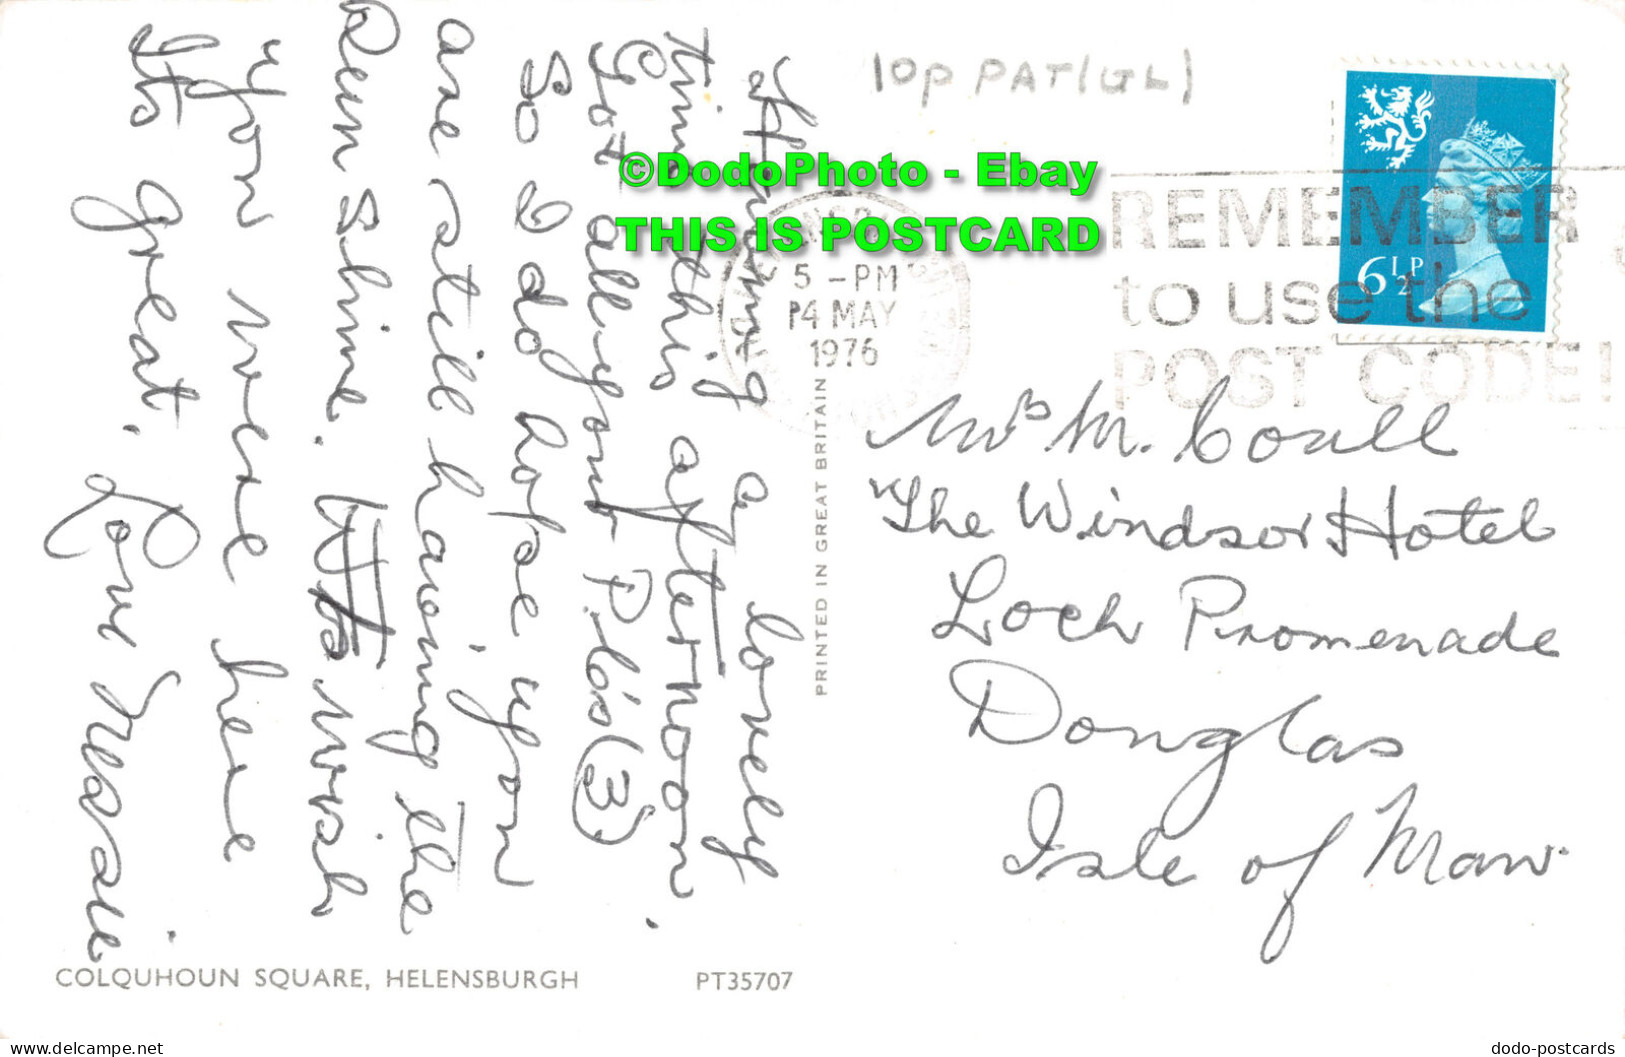 Having a lovely
time this afternoon.
Got all your P.Co's (3)
So I do hope you
are still having the
Sunshine. wish
you were here
Its great. Love Nessie
10p PAT(GL)
5 - PM
14 MAY
1976
REMEMBER
to use the
POST CODE!
6½P
Mrs M. Coull
The Windsor Hotel
Loch Promenade
Douglas
Isle of Man.
PRINTED IN GREAT BRITAIN
COLQUHOUN SQUARE, HELENSBURGH
PT35707
©DodoPhoto - Ebay
THIS IS POSTCARD
www.delcampe.net
dodo-postcards